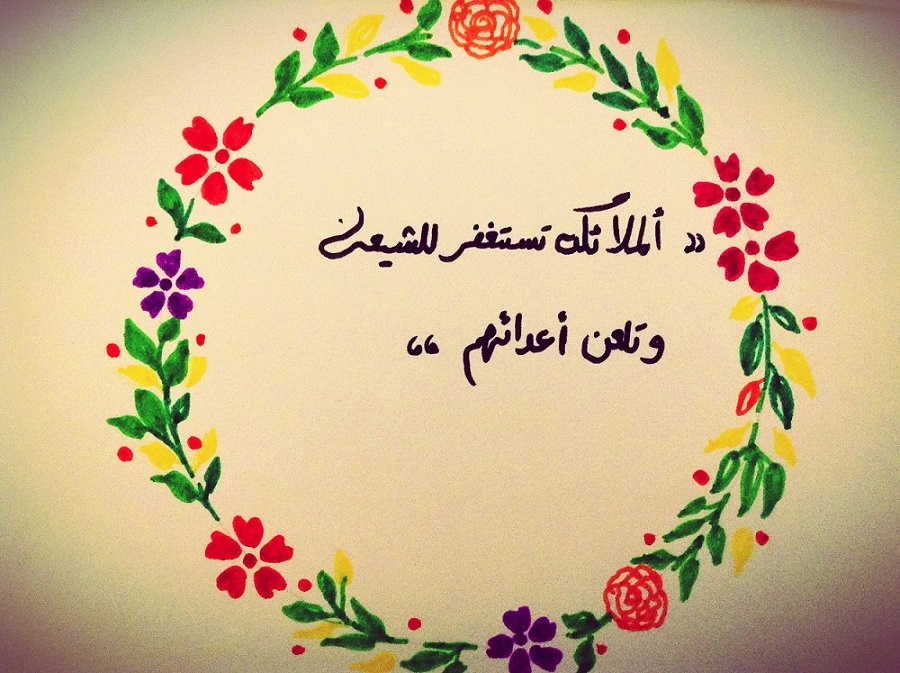 " ألملائكه تستغفر للشيعه
وتلعن أعدائهم "